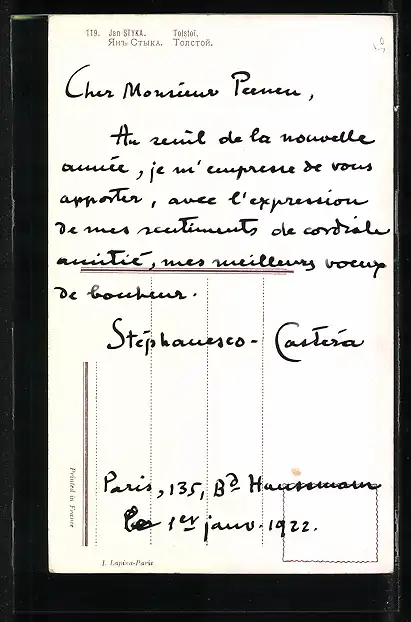 119. Jan STYKA. Tolstoï.
Янъ Стыка. Толстой.
Cher Monsieur
Au seuil de la nouvelle
année, je m'empresse de vous
apporter, avec l'expression
de mes sentiments de cordiale
amitié, mes meilleurs voeux
de bonheur.
Stéphanesco-Castéra
Paris, 135, Bd Haussmann
Le 1er janv. 1922.
Printed in France
I. Lapina-Paris